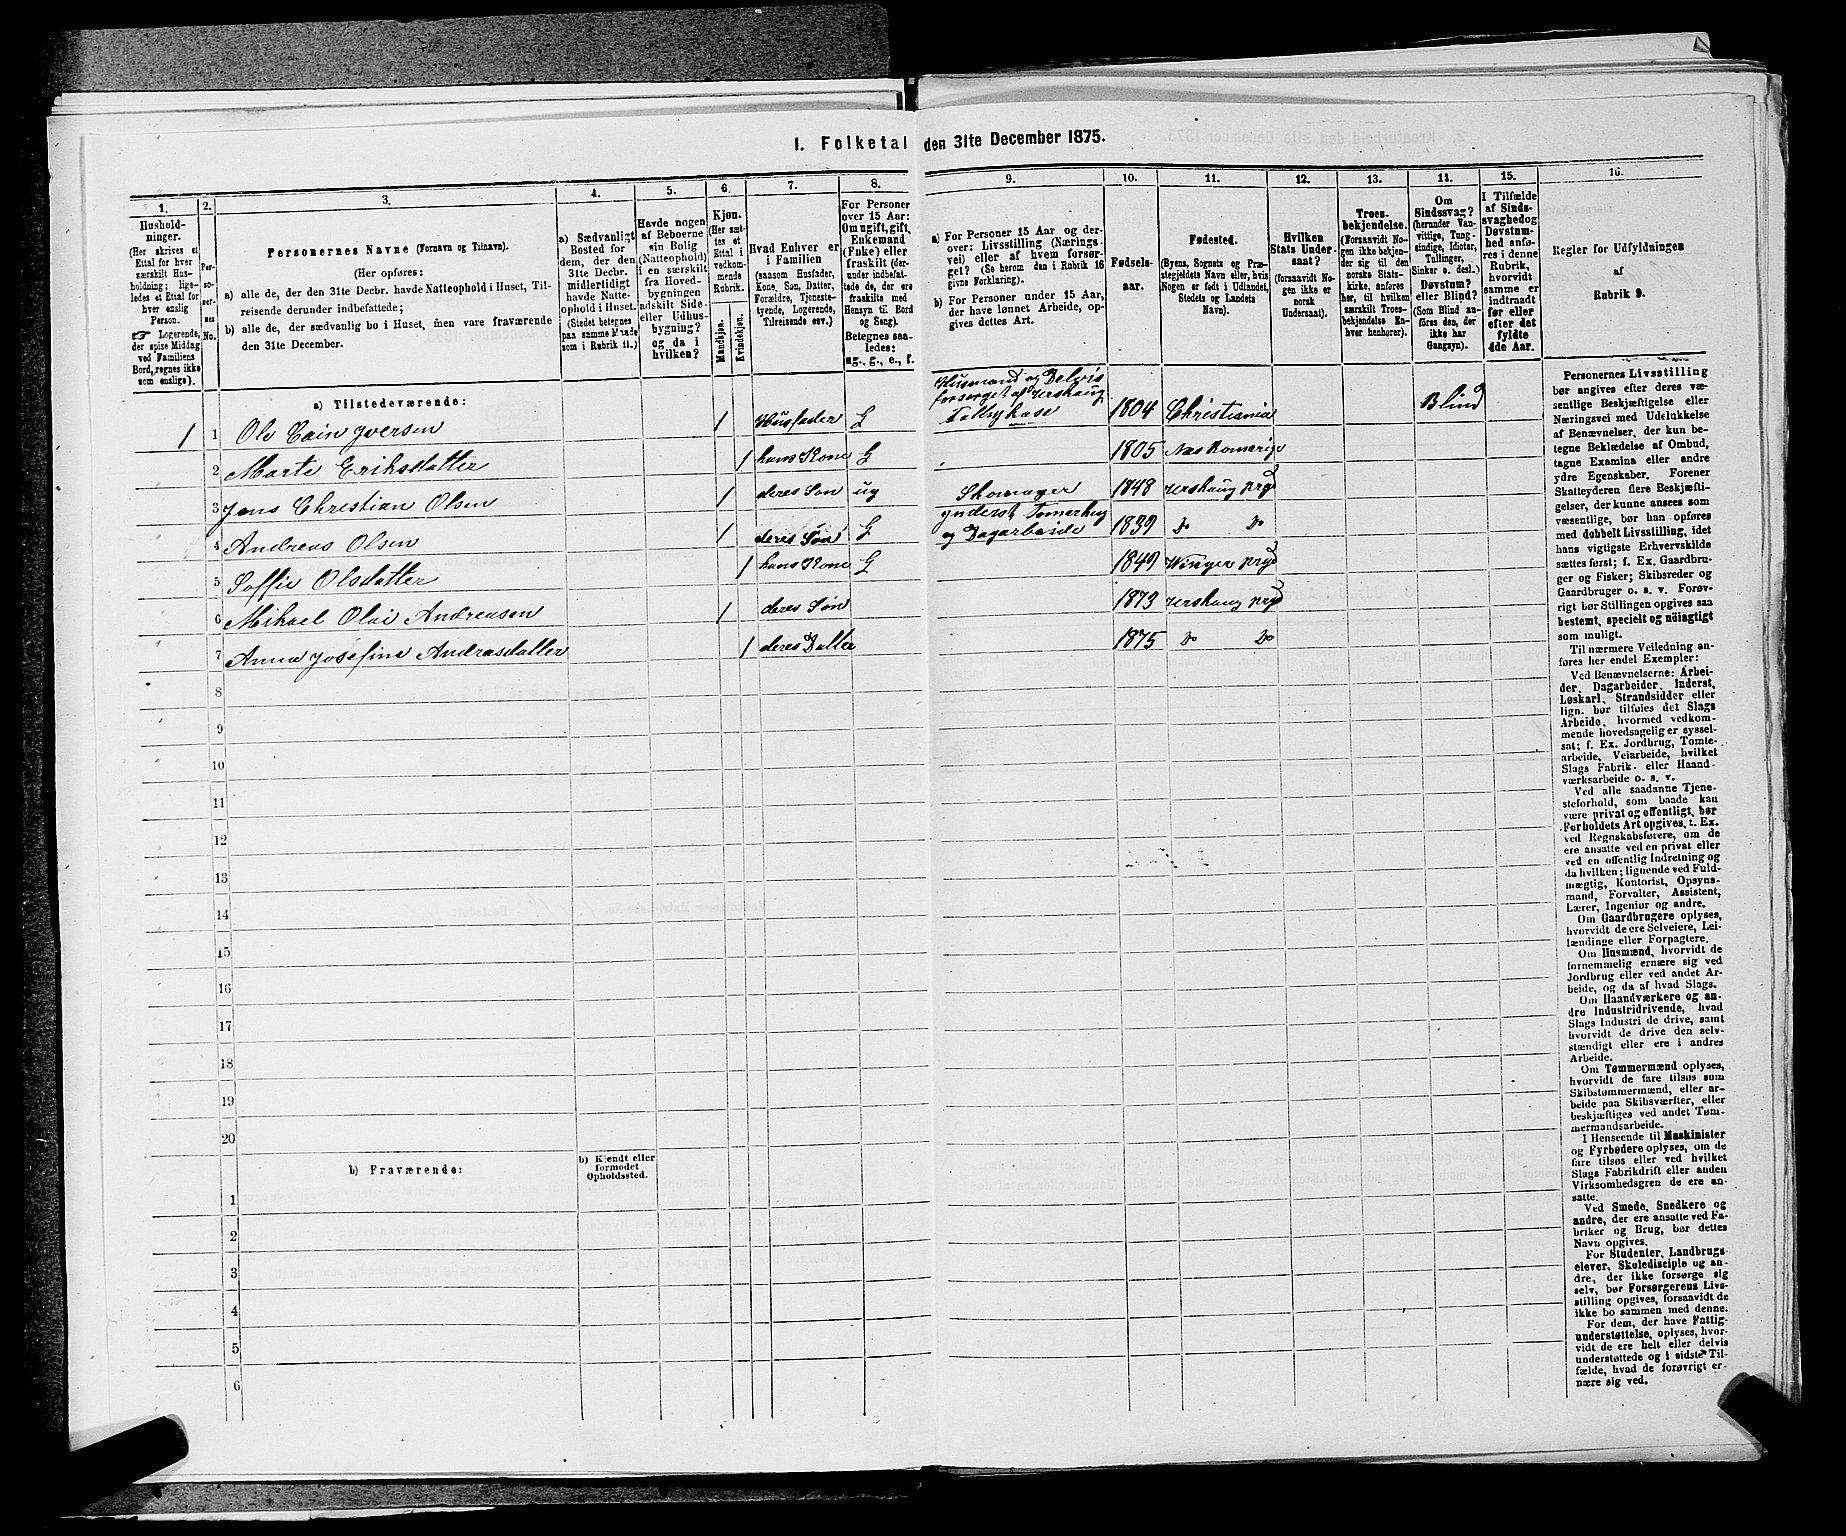 1. Folketal den 31te December 1875.
1.
Husholdninger.
(Her skrives et
Ettal for hver
særskilt Husholdning;
ligeledes et Ettal for
hver enslig
Person.
Logerende,
der spise Middag
ved Familiens
Bord, regnes ikke
som enslige).
2.
Personernes No.
3.
Personernes Navne (Fornavn og Tilnavn).
(Her opføres:
a) alle de, der den 31te Decbr. havde Natteophold i Huset, Tilreisende derunder indbefattede;
b) alle de, der sædvanlig bo i Huset, men vare fraværende
den 31te December.
4.
a) Sædvanligt
Bosted for
dem, der den
31te Decbr.
midlertidigt
havde Natteophold i Huset.
(Stedet betegnes
paa samme Maade
som i Rubrik 11.)
5.
Havde nogen
af Beboerne
sin Bolig
(Natteophold)
i en særskilt
fra Hovedbygningen
adskilt Side- eller Udhusbygning?
og da i
hvilken?
6.
Kjøn.
(Her sættes et
Ettal i
vedkommende
Rubrik.
Mandkjøn.
Kvindekjøn.
7.
Hvad Enhver er
i Familien
(saasom Husfader,
Kone, Søn, Datter,
Forældre, Tjenestetyende, Logerende,
Tilreisende osv.)
8.
For Personer
over 15 Aar:
Om ugift, gift,
Enkemand
(Enke) eller
fraskilt (derunder indbefattede de, der ere
fraskilte med
Hensyn til Bord
og Seng).
Betegnes saaledes:
ug., g., e., f.
9.
a) For Personer 15 Aar og derover: Livsstilling (Næringsvei) eller af hvem forsørget? (Se herom den i Rubrik 16
givne Forklaring).
b) For Personer under 15 Aar,
der have lønnet Arbeide, opgives dettes Art.
10.
Fødselsaar.
11.
Fødested.
(Byens, Sognets og Præstegjeldets Navn eller, hvis
Nogen er født i Udlandet,
Stedets og Landets
Navn).
12.
Hvilken
Stats Undersaat?
(forsaavidt Nogen ikke er
norsk
Undersaat).
13.
Troesbekjendelse.
(Forsaavidt Nogen ikke bekjender sig til den
norske Statskirke, anføres
her, til hvilken
særskilt Troesbekjendelse Enhver henhører).
14.
Om
Sindssvag?
(herunder Vanvittige, Tungsindige, Idioter,
Tullinger,
Sinker o. desl.)
Døvstum?
eller Blind?
(Som Blind anføres den, der
ikke har
Gangsyn).
15.
I Tilfælde
af Sindssvaghed og
Døvstumhed anføres i denne
Rubrik,
hvorvidt
samme er
indtraadt
før eller
efter det
fyldte
4de Aar.
16.
Regler for Udfyldningen
af
Rubrik 9.
a) Tilstedeværende:
1 1 Ole Cain Iversen 1 Husfader G Husmand og Delvis forsørget af Urskoug Fattigkase 1804 Christiania Blind
2 Marte Eriksdatter 1 hans Kone G 1805 Nes Romerige
3 Jens Christian Olsen 1 deres Søn ug Skomager 1848 Urskoug Prgd
4 Andreas Olsen 1 deres Søn G Inderst Tømerhug og Dagarbeide 1839 do do
5 Soffie Olsdatter 1 hans Kone G 1849 Winger Prgd
6 Mikael Olai Andreasen 1 deres Søn 1873 Urskoug Prgd
7 Anna Josefine Andreasdatter 1 deres Datter 1875 do do
8
9
10
11
12
13
14
15
16
17
18
19
20
b) Fraværende:
b) Kjendt eller
formodet
Opholdssted.
1
2
3
4
5
6
Personernes Livsstilling
bør angives efter deres væsentlige Beskjæftigelse eller
Næringsvei med Udelukkelse
af Benævnelser, der kun betegne Beklædelse af Ombud,
tagne Examina eller andre
ydre Egenskaber. Forener
Skatteyderen flere Beskjæftigelser, der kunne ansees som
væsentlige, bør han opføres
med dobbelt Livsstilling, idet
hans vigtigste Erhvervskilde
sættes først; f. Ex. Gaardbruger og Fisker; Skibsreder og
Gaardbruger o. s. v. Forøvrigt bør Stillingen opgives saa
bestemt, specielt og nöiagtigt
som muligt.
Til nærmere Veiledning anføres her endel Exempler:
Ved Benævnelserne: Arbeider, Dagarbeider, Inderst,
Løskarl, Strandsidder eller
lign. bør tilføies det Slags
Arbeide, hvormed vedkommende hovedsagelig er sysselsat; f. Ex. Jordbrug, Tomtearbeide, Veiarbeide, hvilket
Slags Fabrik- eller Haandværksarbeide o. s. v.
Ved alle saadanne Tjenesteforhold, som baade kan
være privat og offentligt, bør
Forholdets Art opgives, t. Ex.
ved Regnskabsførere, om de
ere ansatte ved en privat eller
ved en offentlig Indretning og
da hvilken; lignende ved Fuldmægtig, Kontorist, Opsynsmand, Forvalter, Assistent,
Lærer, Ingeniør og andre.
Om Gaardbrugere oplyses,
hvorvidt de ere Selveiere, Leilændinge eller Forpagtere.
Om Husmænd, hvorvidt de
fornemmelig ernære sig ved
Jordbrug eller ved andet Arbeide, og da af hvad Slags.
Om Haandværkere og andre Industridrivende, hvad
Slags Industri de drive, samt
hvorvidt de drive den selvstændigt eller ere i andres
Arbeide.
Om Tømmermænd oplyses,
hvorvidt de fare tilsøs som
Skibstømmermænd, eller arbeide paa Skibsværfter, eller
beskjæftiges ved andet Tømmermandsarbeide.
I Henseende til Maskinister
og Fyrbødere oplyses, om de
fare tilsøs eller ved hvilket
Slags Fabrikdrift eller anden
Virksomhedsgren de ere ansatte.
Ved Smede, Snedkere og
andre, der ere ansatte ved Fabriker og Brug, bør dettes
Navn opgives.
For Studenter, Landbrugselever, Skoledisciple og andre, der ikke forsørge sig
selv, bør Forsørgerens Livsstilling opgives, forsaavidt de
ikke bo sammen med denne.
For dem, der have Fattigunderstøttelse, oplyses, hvorvidt de ere helt eller delvis
understøttede og i sidste Tilfælde, hvad de forøvrigt ernære sig ved.